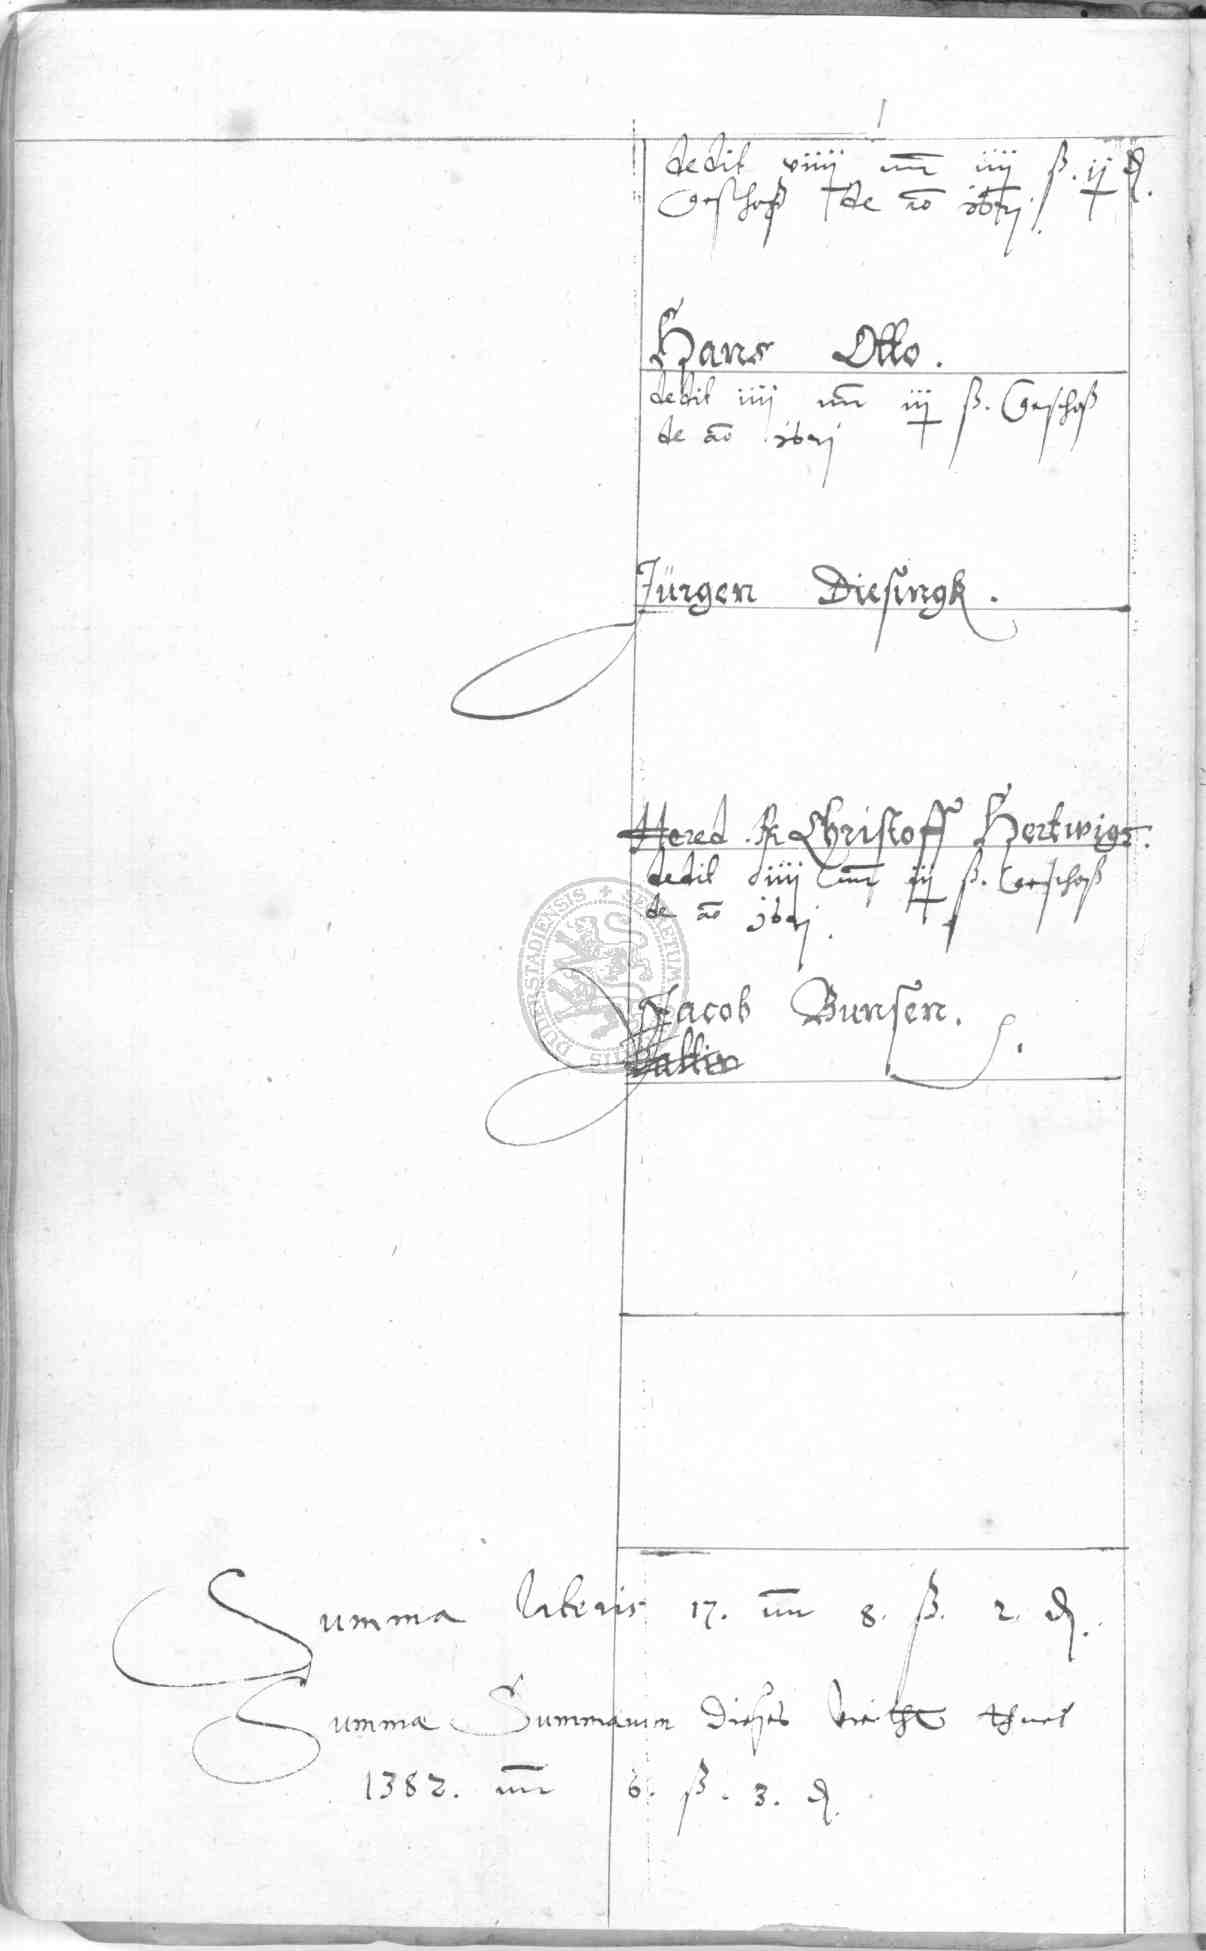 dedit viiij mr iiij ß. ij ₰
Geschoß de ao
Hans Otto.
dedit iiij mr iij ß. Geschoß
de ao
Jürgen Diesingk.
Hered. Christoff Hertwigs.
dedit iiij mr iij ß. Geschoß
de ao
Jacob Bunsen.
Summa lateris 17. mr 8. ß. 2. ₰.
Summa Summarum dieses thuet
1382. mr 6. ß. 3. ₰.
DUDERSTADIENSIS